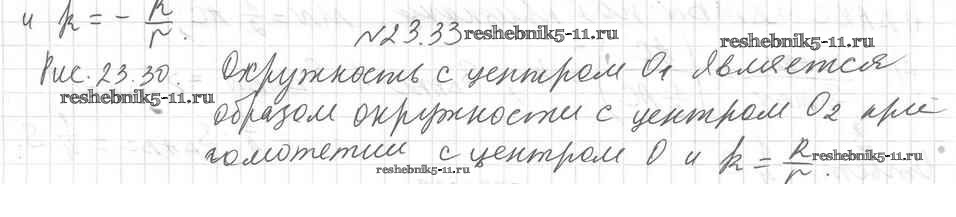 и k = - R/r.
№23.33 reshebnik5-11.ru reshebnik5-11.ru
Рис. 23.30. Окружность с центром O1 является
reshebnik5-11.ru
образом окружности с центром O2 при
гомотетии с центром O и k = R/r. reshebnik5-11.ru
reshebnik5-11.ru